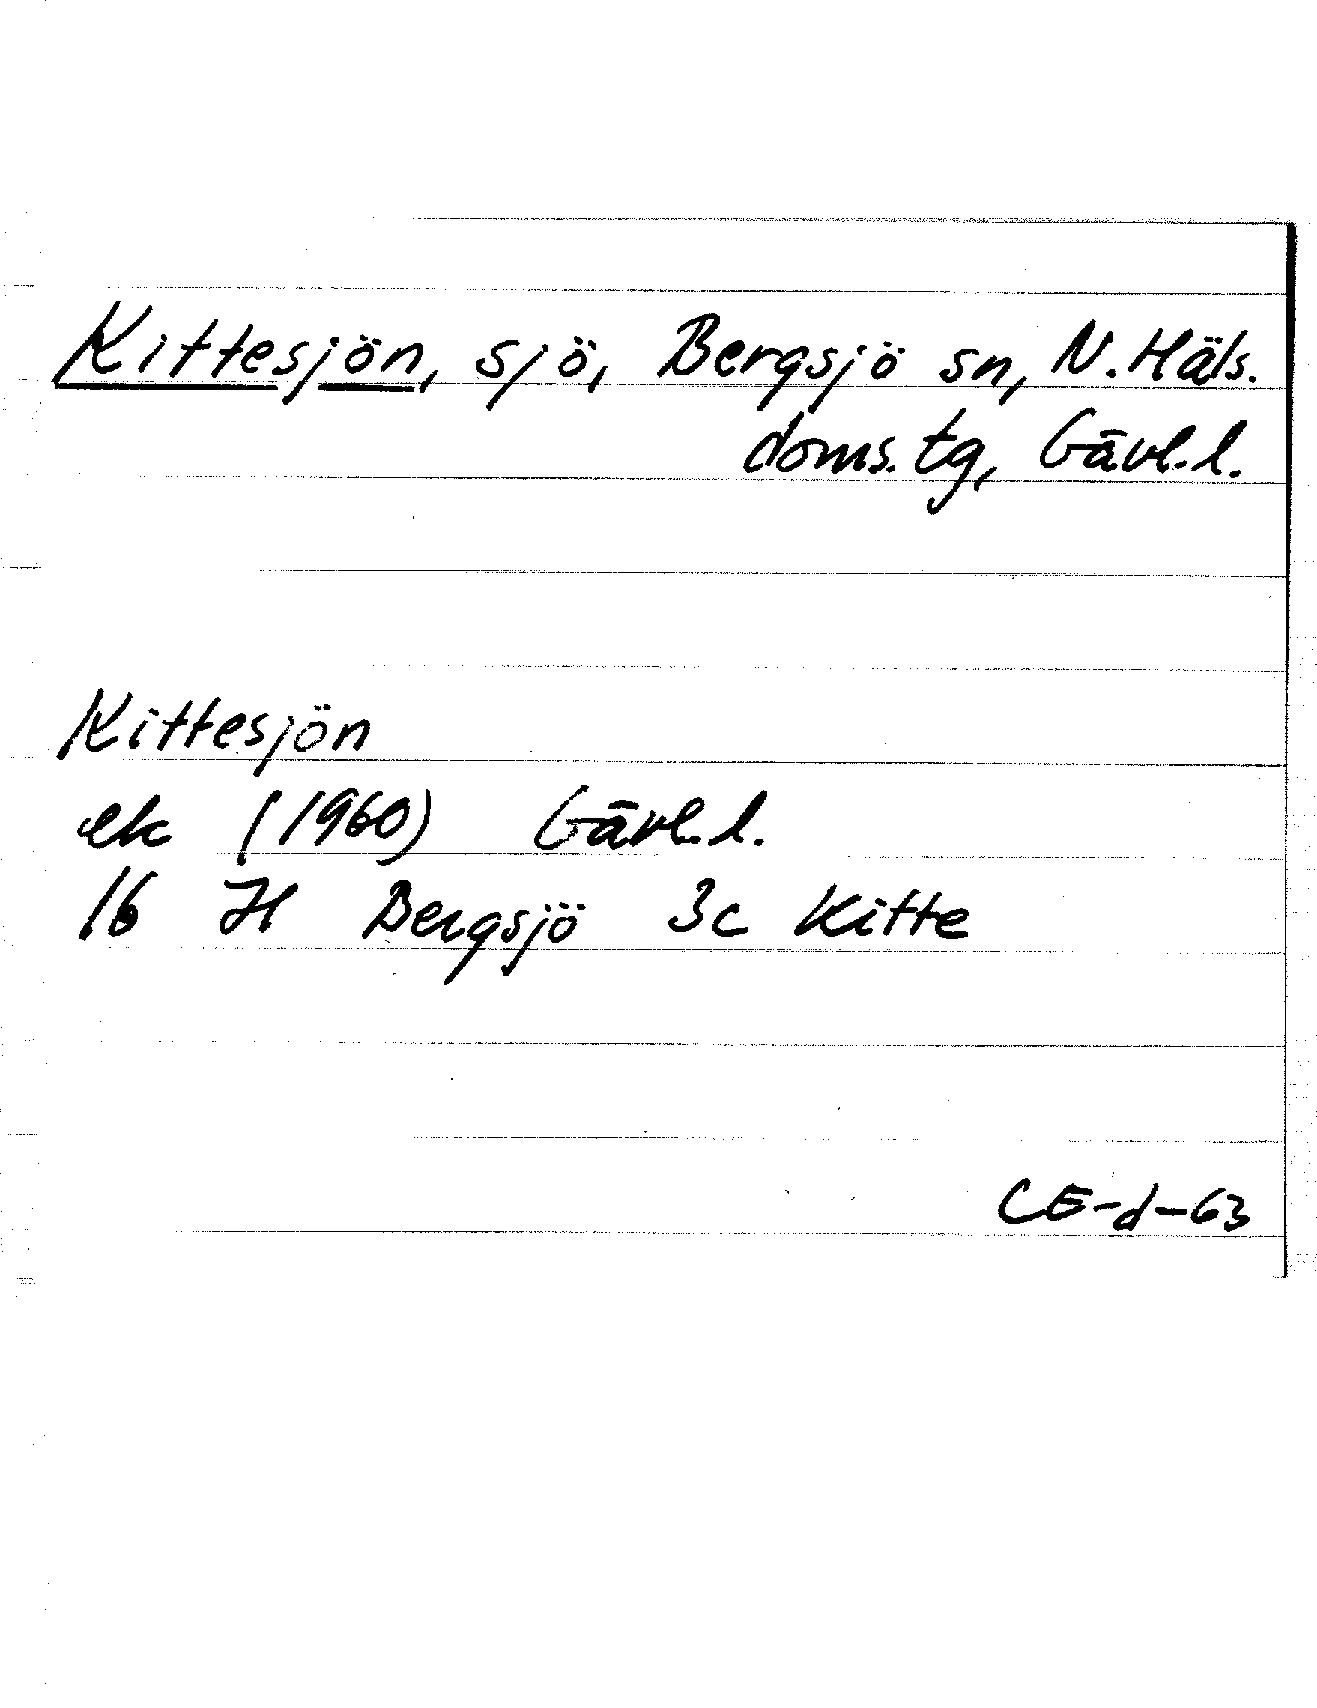 Kittesjön, sjö, Bergsjö sn, N. Häls.
doms. tg, Gävl. l.
Kittesjön
ek (1960) Gävl. l.
16 H Bergsjö 3c Kitte
CE-d-63